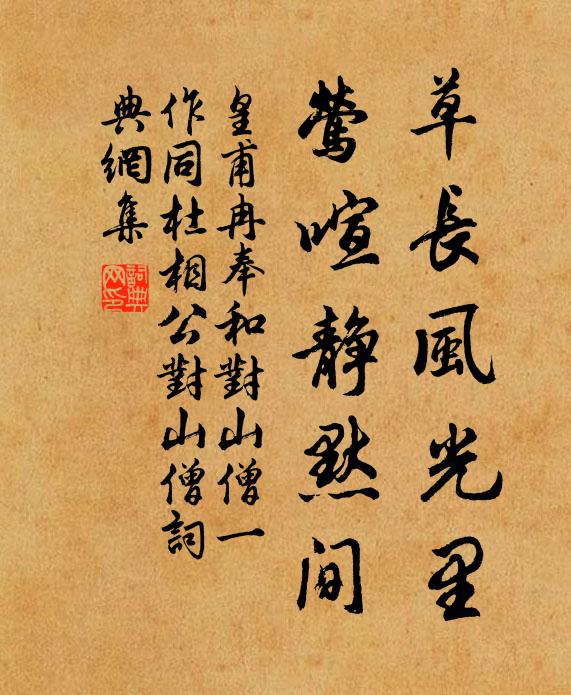 草長風光里
鶯喧静默间
皇甫冉奉和對山僧一
作同杜相公對山僧詞
典網集
詞典
网印